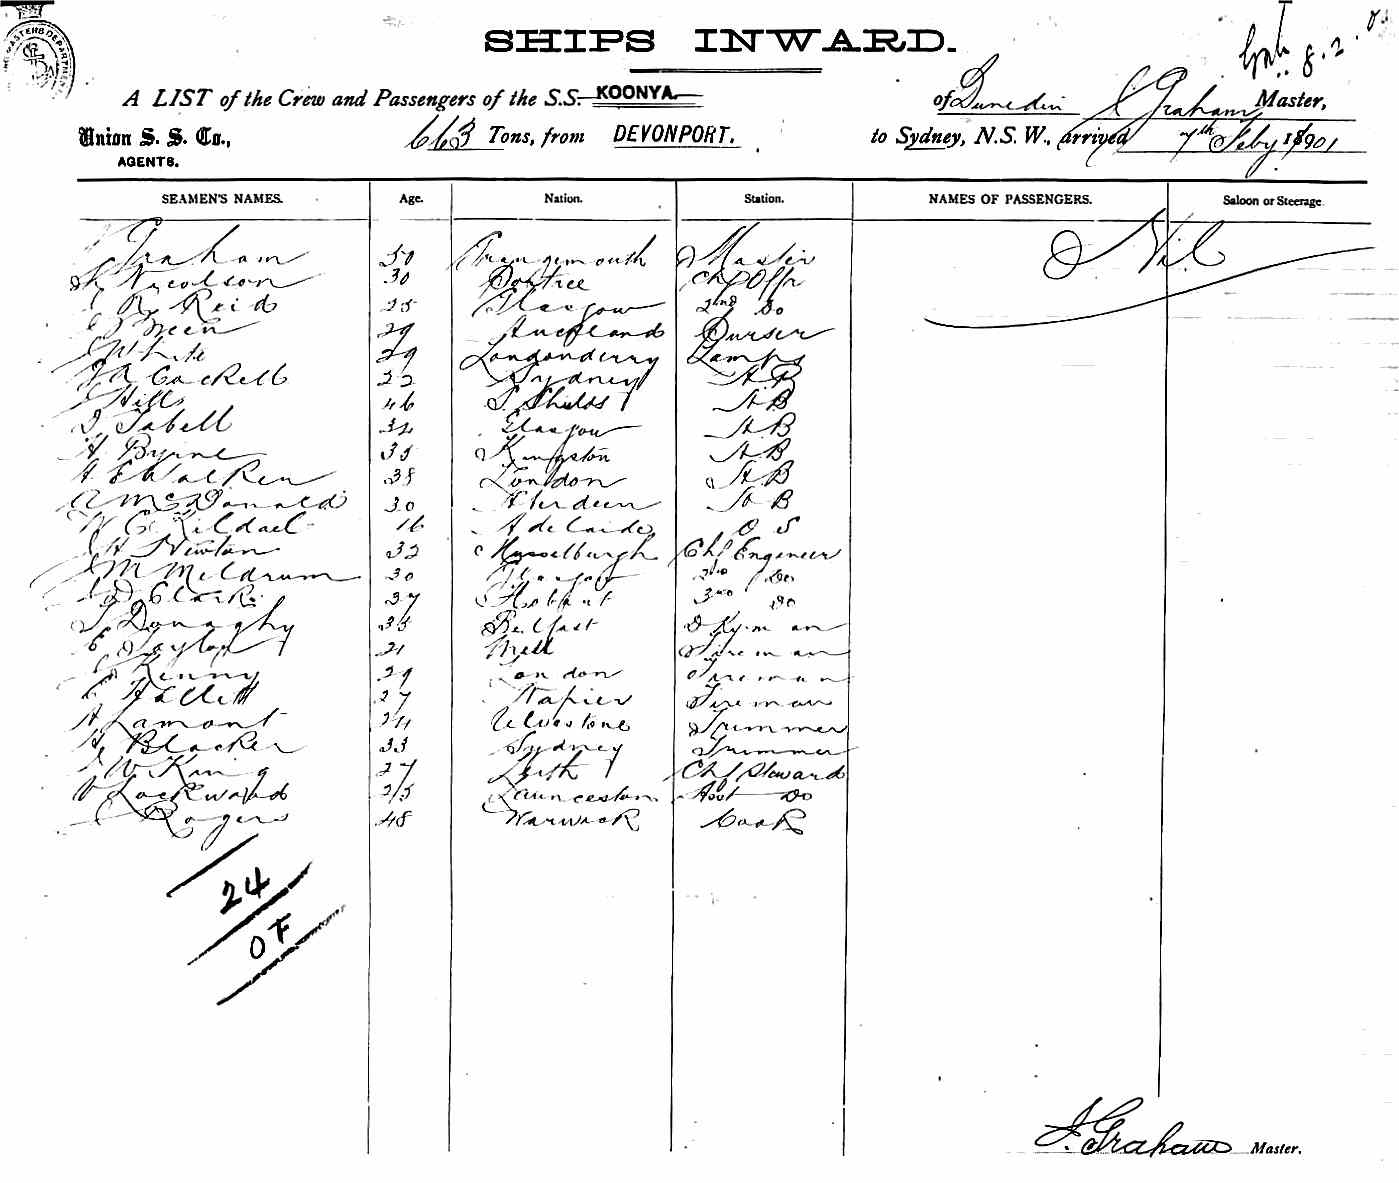 MASTERS DEPARTMENT
SHIPS INWARD.
8.2.
A LIST of the Crew and Passengers of the S.S. KOONYA of Dunedin J Graham Master,
Union S. S. Co., AGENTS. 663 Tons, from DEVONPORT. to Sydney, N.S.W., arrived 7th Feby 1901
SEAMEN'S NAMES. Age. Nation. Station. NAMES OF PASSENGERS. Saloon or Steerage
Graham 50 Grangemouth Master Nil
Nicolson 30 Portree Chf Offr
R Reid 25 Glasgow 2nd Do
29 Auckland Purser
White 29 Londonderry Lamps
Cockell 22 Sydney AB
Hills 46 S. Shields AB
Tabell 34 Glasgow AB
H Byrne 35 Kingston AB
A E Walker 38 London AB
McDonald 30 Aberdeen AB
W C Kildael 16 Adelaide O S
H Newton 32 Musselburgh Chf Engineer
M Meldrum 30 Glasgow 2nd Do
D Clark 37 Hobart 3rd Do
Donaghy 35 Belfast Dkyman
Taylor 21 Fireman
Kenny 29 London Fireman
Hallett 27 Napier Fireman
A Lamont 24 Ulverstone Trimmer
H Blacker 33 Sydney Trimmer
W King 27 Leith Chf Steward
Lockwood 25 Launceston Asst Do
Rogers 48 Warwick Cook
24
OF
J. Graham Master.